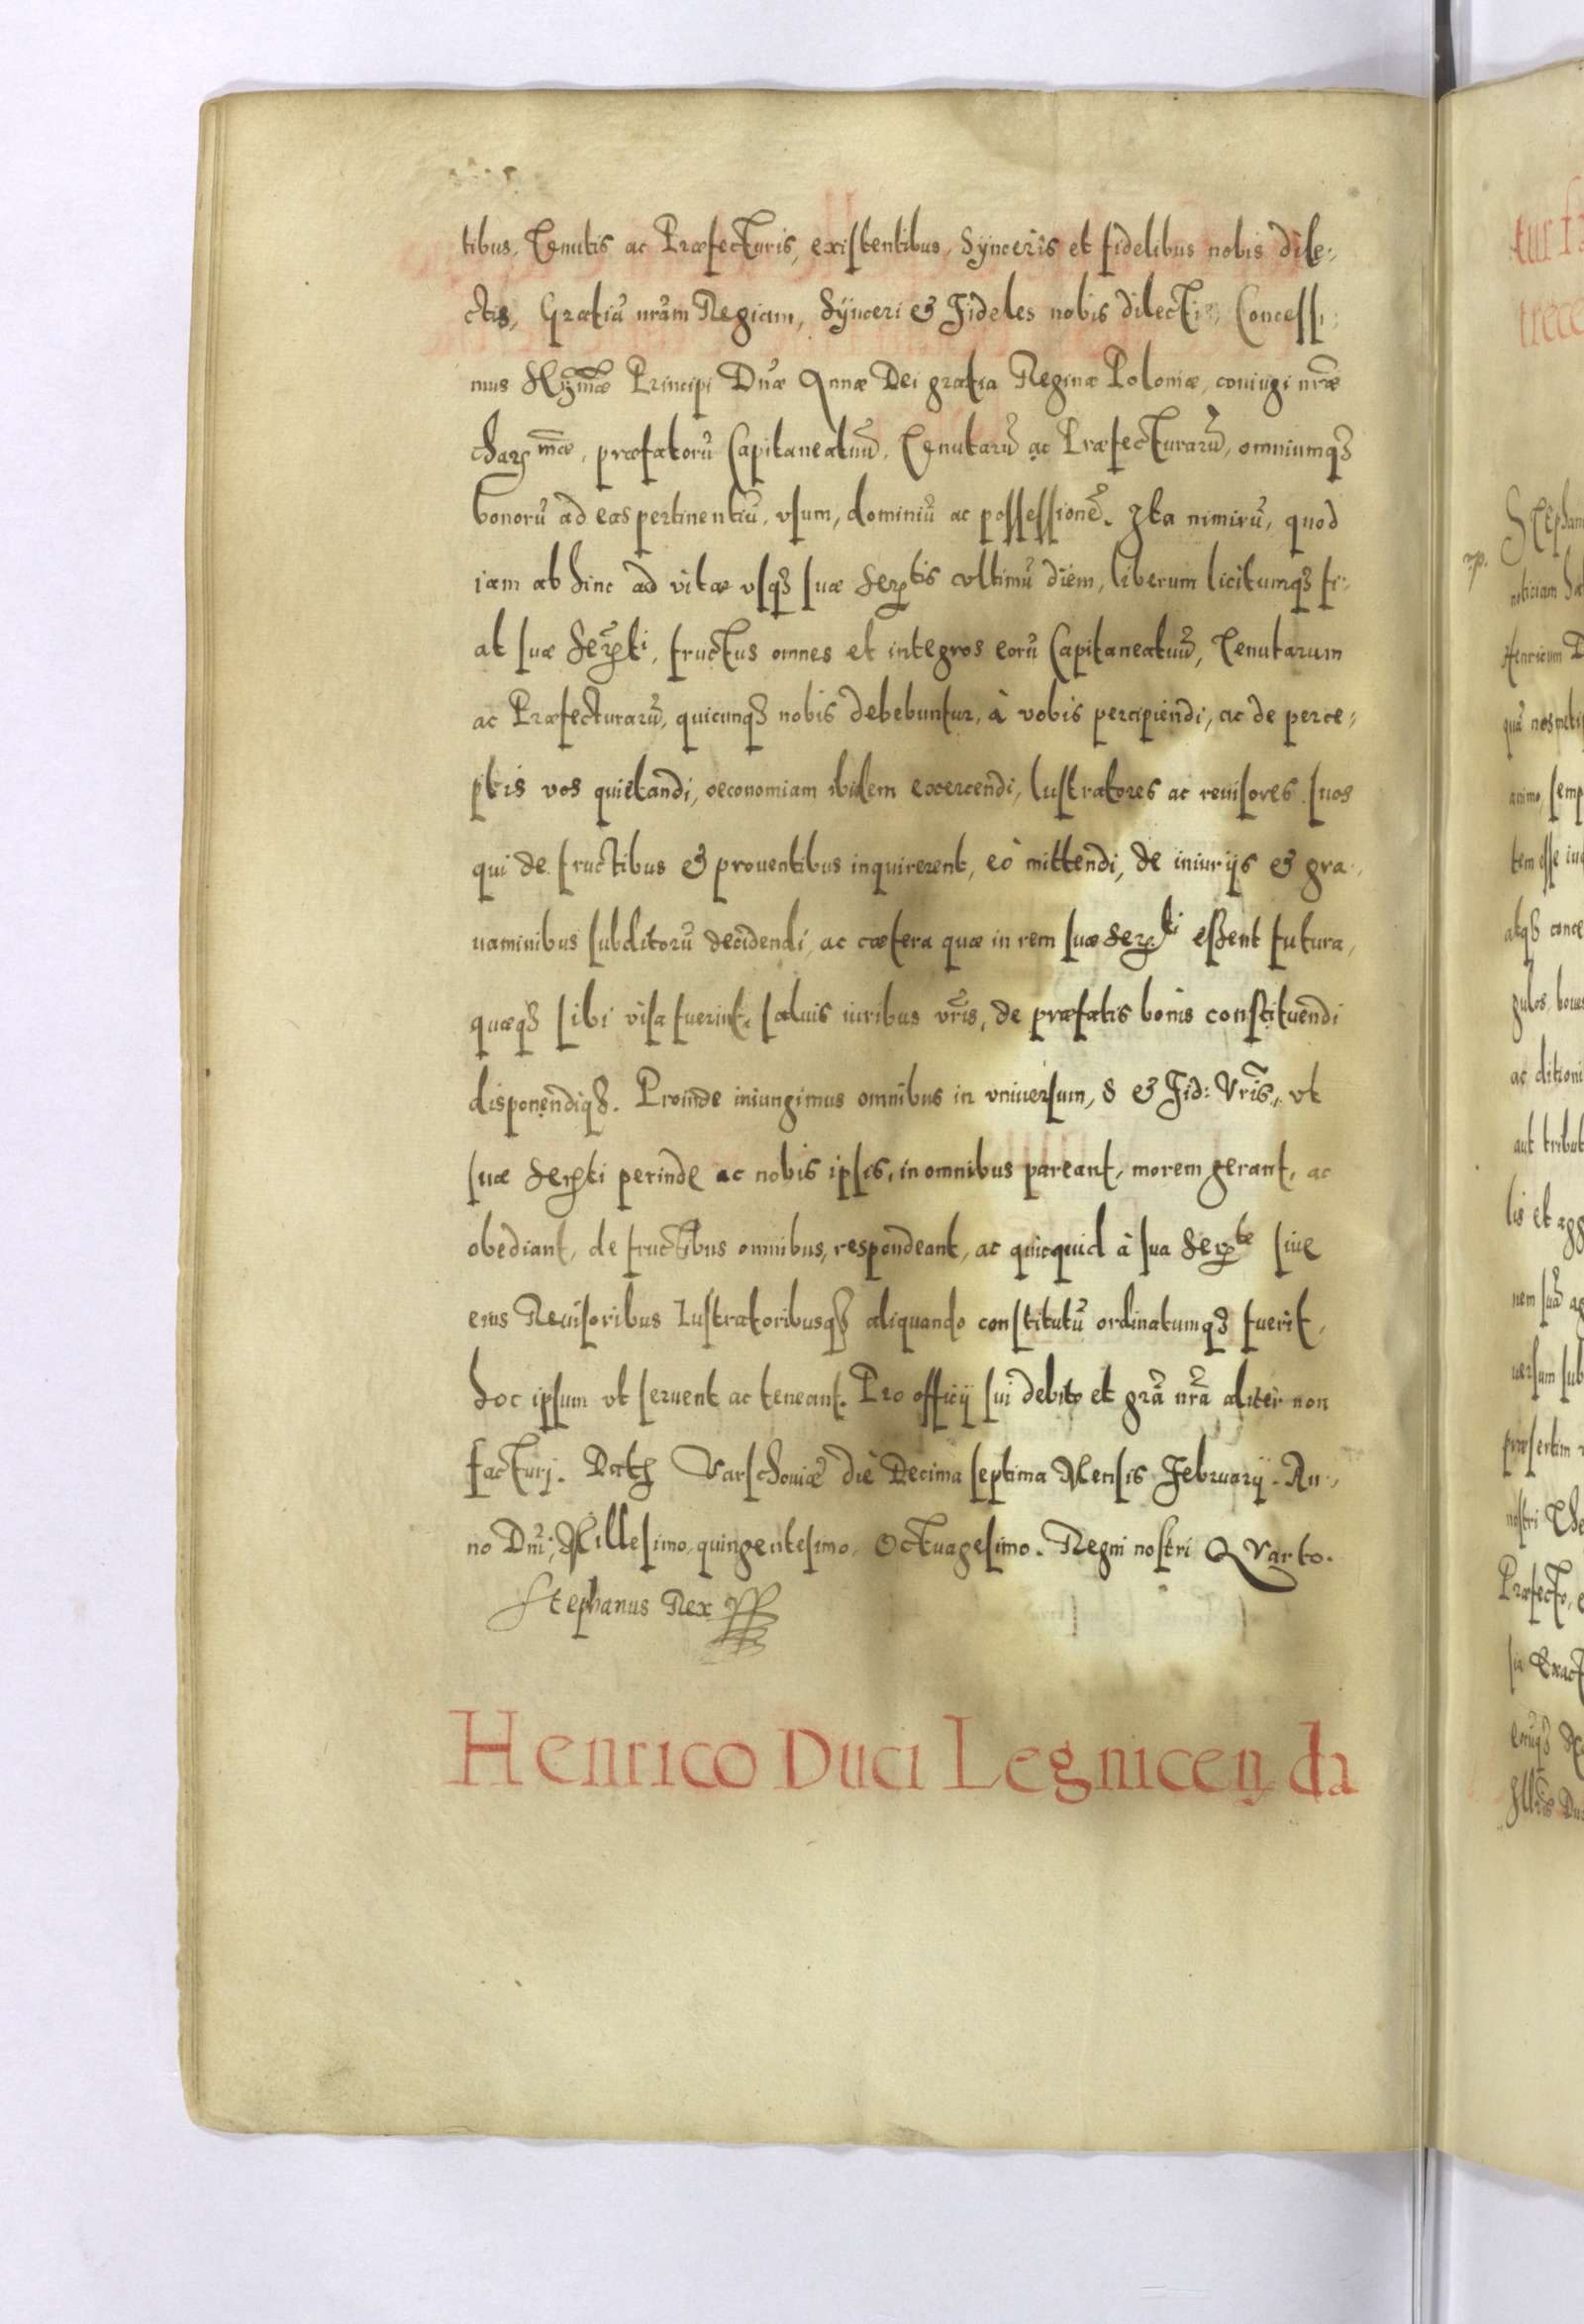 tibus, Tenutis ac Præfecturis, existentibus, Synceris et fidelibus nobis dile-
ctis, Gratiā nrām Regiam, Synceri & Fideles nobis dilecti, Concessi-
mus Principi Dnæ Annæ Dei gratia Reginæ Poloniæ, coniugi nræ
char^mæ, præfatorū Capitaneatuū, Tenutarū ac Præfecturarū, omniumq3
bonorū ad eas pertinentiū, vsum, dominiū ac possessionē. Ita nimirū, quod
iam ab hinc ad vitæ vsq3 suæ Ser^tis vltimū diem, liberum licitumq3 fi-
at suæ Ser^ti, fructus omnes et integros eorū Capitaneatuū, Tenutarum
ac Præfecturarū, quicunq3 nobis debebuntur, à vobis percipiendi, ac de perce-
ptis vos quietandi, oeconomiam ibidem exercendi, lustratores ac reuisores suos
qui de fructibus & prouentibus inquirerent, eò mittendi, de iniurijs & gra-
uaminibus subditorū decidendi, ac cætera quæ in rem suæ Ser^ti essent futura,
quæq3 sibi visa fuerint, saluis iuribus vris, de præfatis bonis constituendi
disponendiq3. Proinde iniungimus omnibus in vniuersum, S & Fid: Vris, vt
suæ Ser^ti perinde ac nobis ipsis, in omnibus pareant, morem gerant, ac
obediant, de fructibus omnibus, respondeant, ac quicquid à sua Ser^te siue
eius Reuisoribus Lustratoribusq3 aliquando constitutū ordinatumq3 fuerit,
hoc ipsum vt seruent ac teneant. Pro officij sui debito et grā nrā aliter non
facturj. Dat Varschouiæ die Decima septima Mensis Februarij. An-
no Dni, Millesimo, quingentesimo, Octuagesimo. Regni nostri Qvarto.
Stephanus Rex
Henrico Duci Legnicen da